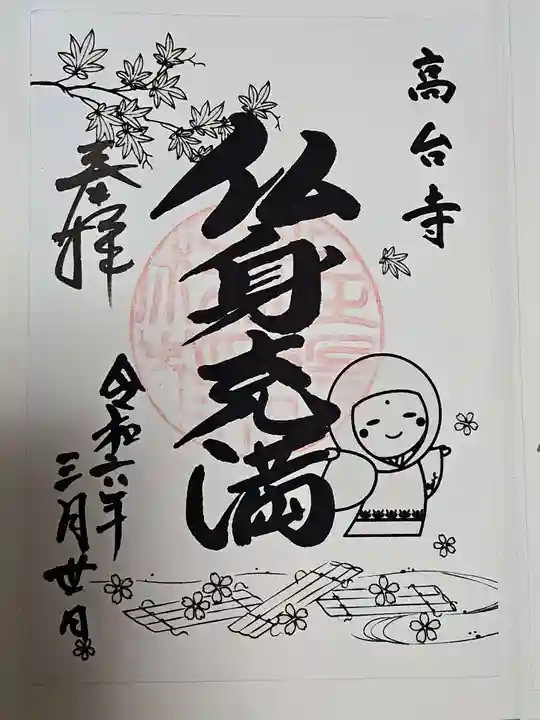 高台寺
仏身充満
奉拝
令和六年
三月廿日